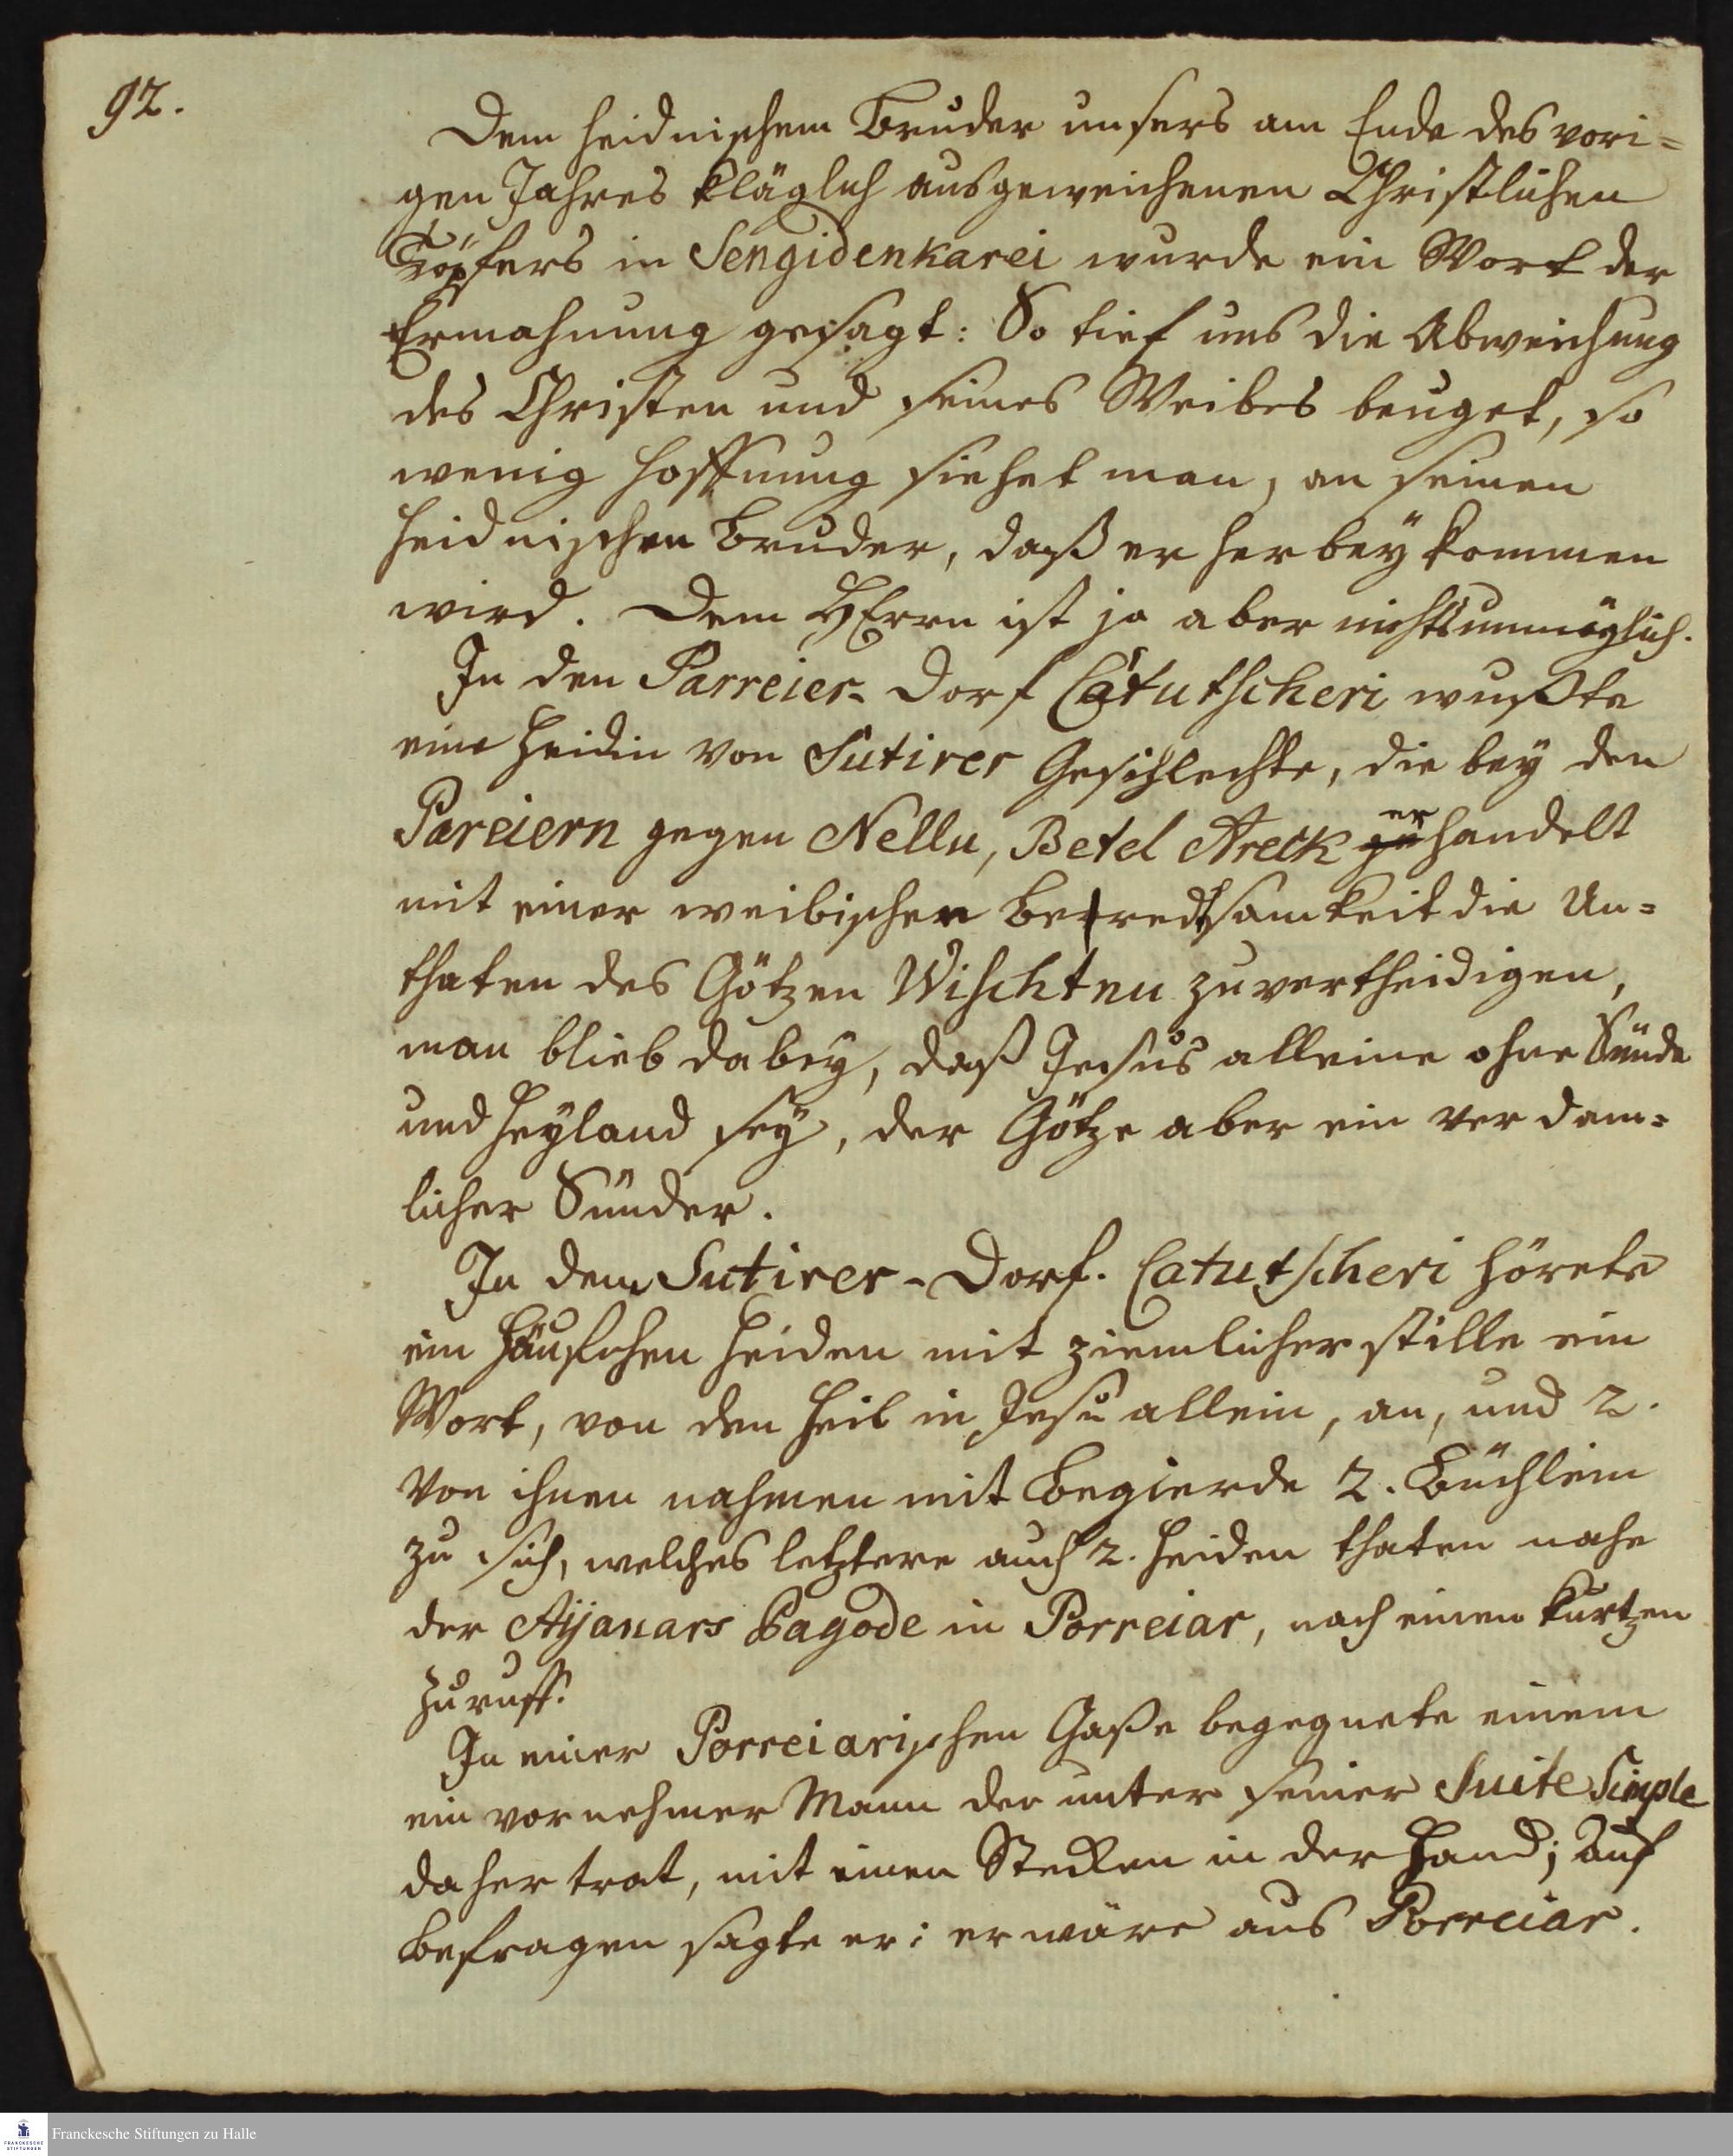 92.
Dem heidnischem Bruder unsers am Ende des vori=
gen Jahres kläglich ausgewichenen Christlichen
Töpfers in Sengidenkarei wurde ein Wort der
Ermahnung gesagt: So tief uns die Abweichung
des Christen und seines Weibes beuget, so
wenig Hoffnung siehet man, an seinen
heidnischen Bruder, daß er herbey kommen
wird. Dem HErrn ist ja aber nichts unmöglich.
In den Parreier-Dorf Catutscheri wußte
eine Heidin von Sutirer Geschlechte, die bey den
Pareiern gegen Nellu, Betel Areck erhandelt
mit einer weibischen Beredsamkeit die Un=
thaten des Götzen Wischtnu zu vertheidigen,
man blieb dabey, daß Jesus alleine ohne Sünde
und Heyland sey, der Götze aber ein verdam=
licher Sünder.
In dem Sutirer-Dorf. Catutscheri hörete
ein Häufchen Heiden mit ziemlicher stille ein
Wort, von den Heil in Jesu allein, an, und 2.
von ihnen nahmen mit Begierde 2. Büchlein
zu sich, welches letztere auch 2. Heiden thaten nahe
der Aijanars Pagode in Porreiar, nach einen kurtzen
Zuruff.
In einer Porreiarischen Gaße begegnete einem
ein vornehmer Mann der unter seiner Suite Simple
daher trat, mit einen Stecken in der Hand; Auf
Befragen sagte er: er wäre aus Porreiar.
Franckesche Stiftungen zu Halle
FRANCKESCHE
STIFTUNGEN